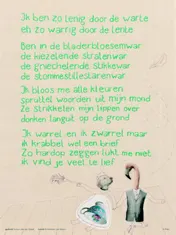 Ik ben zo lenig door de warte
en zo warrig door de lente
Ben in de bladerbloesemwar
de kiezelende stralenwar
de griechelende slikkewar
de stommestilleslarenwar
Ik bloos me alle kleuren
spruttel woorden uit mijn mond
Ze strikkelen mijn lippen over
donker languit op de grond
Ik warrel en ik zwarrel maar
ik krabbel wel een brief
Zo hardop zeggen lukt me niet
ik vind je veel te lief